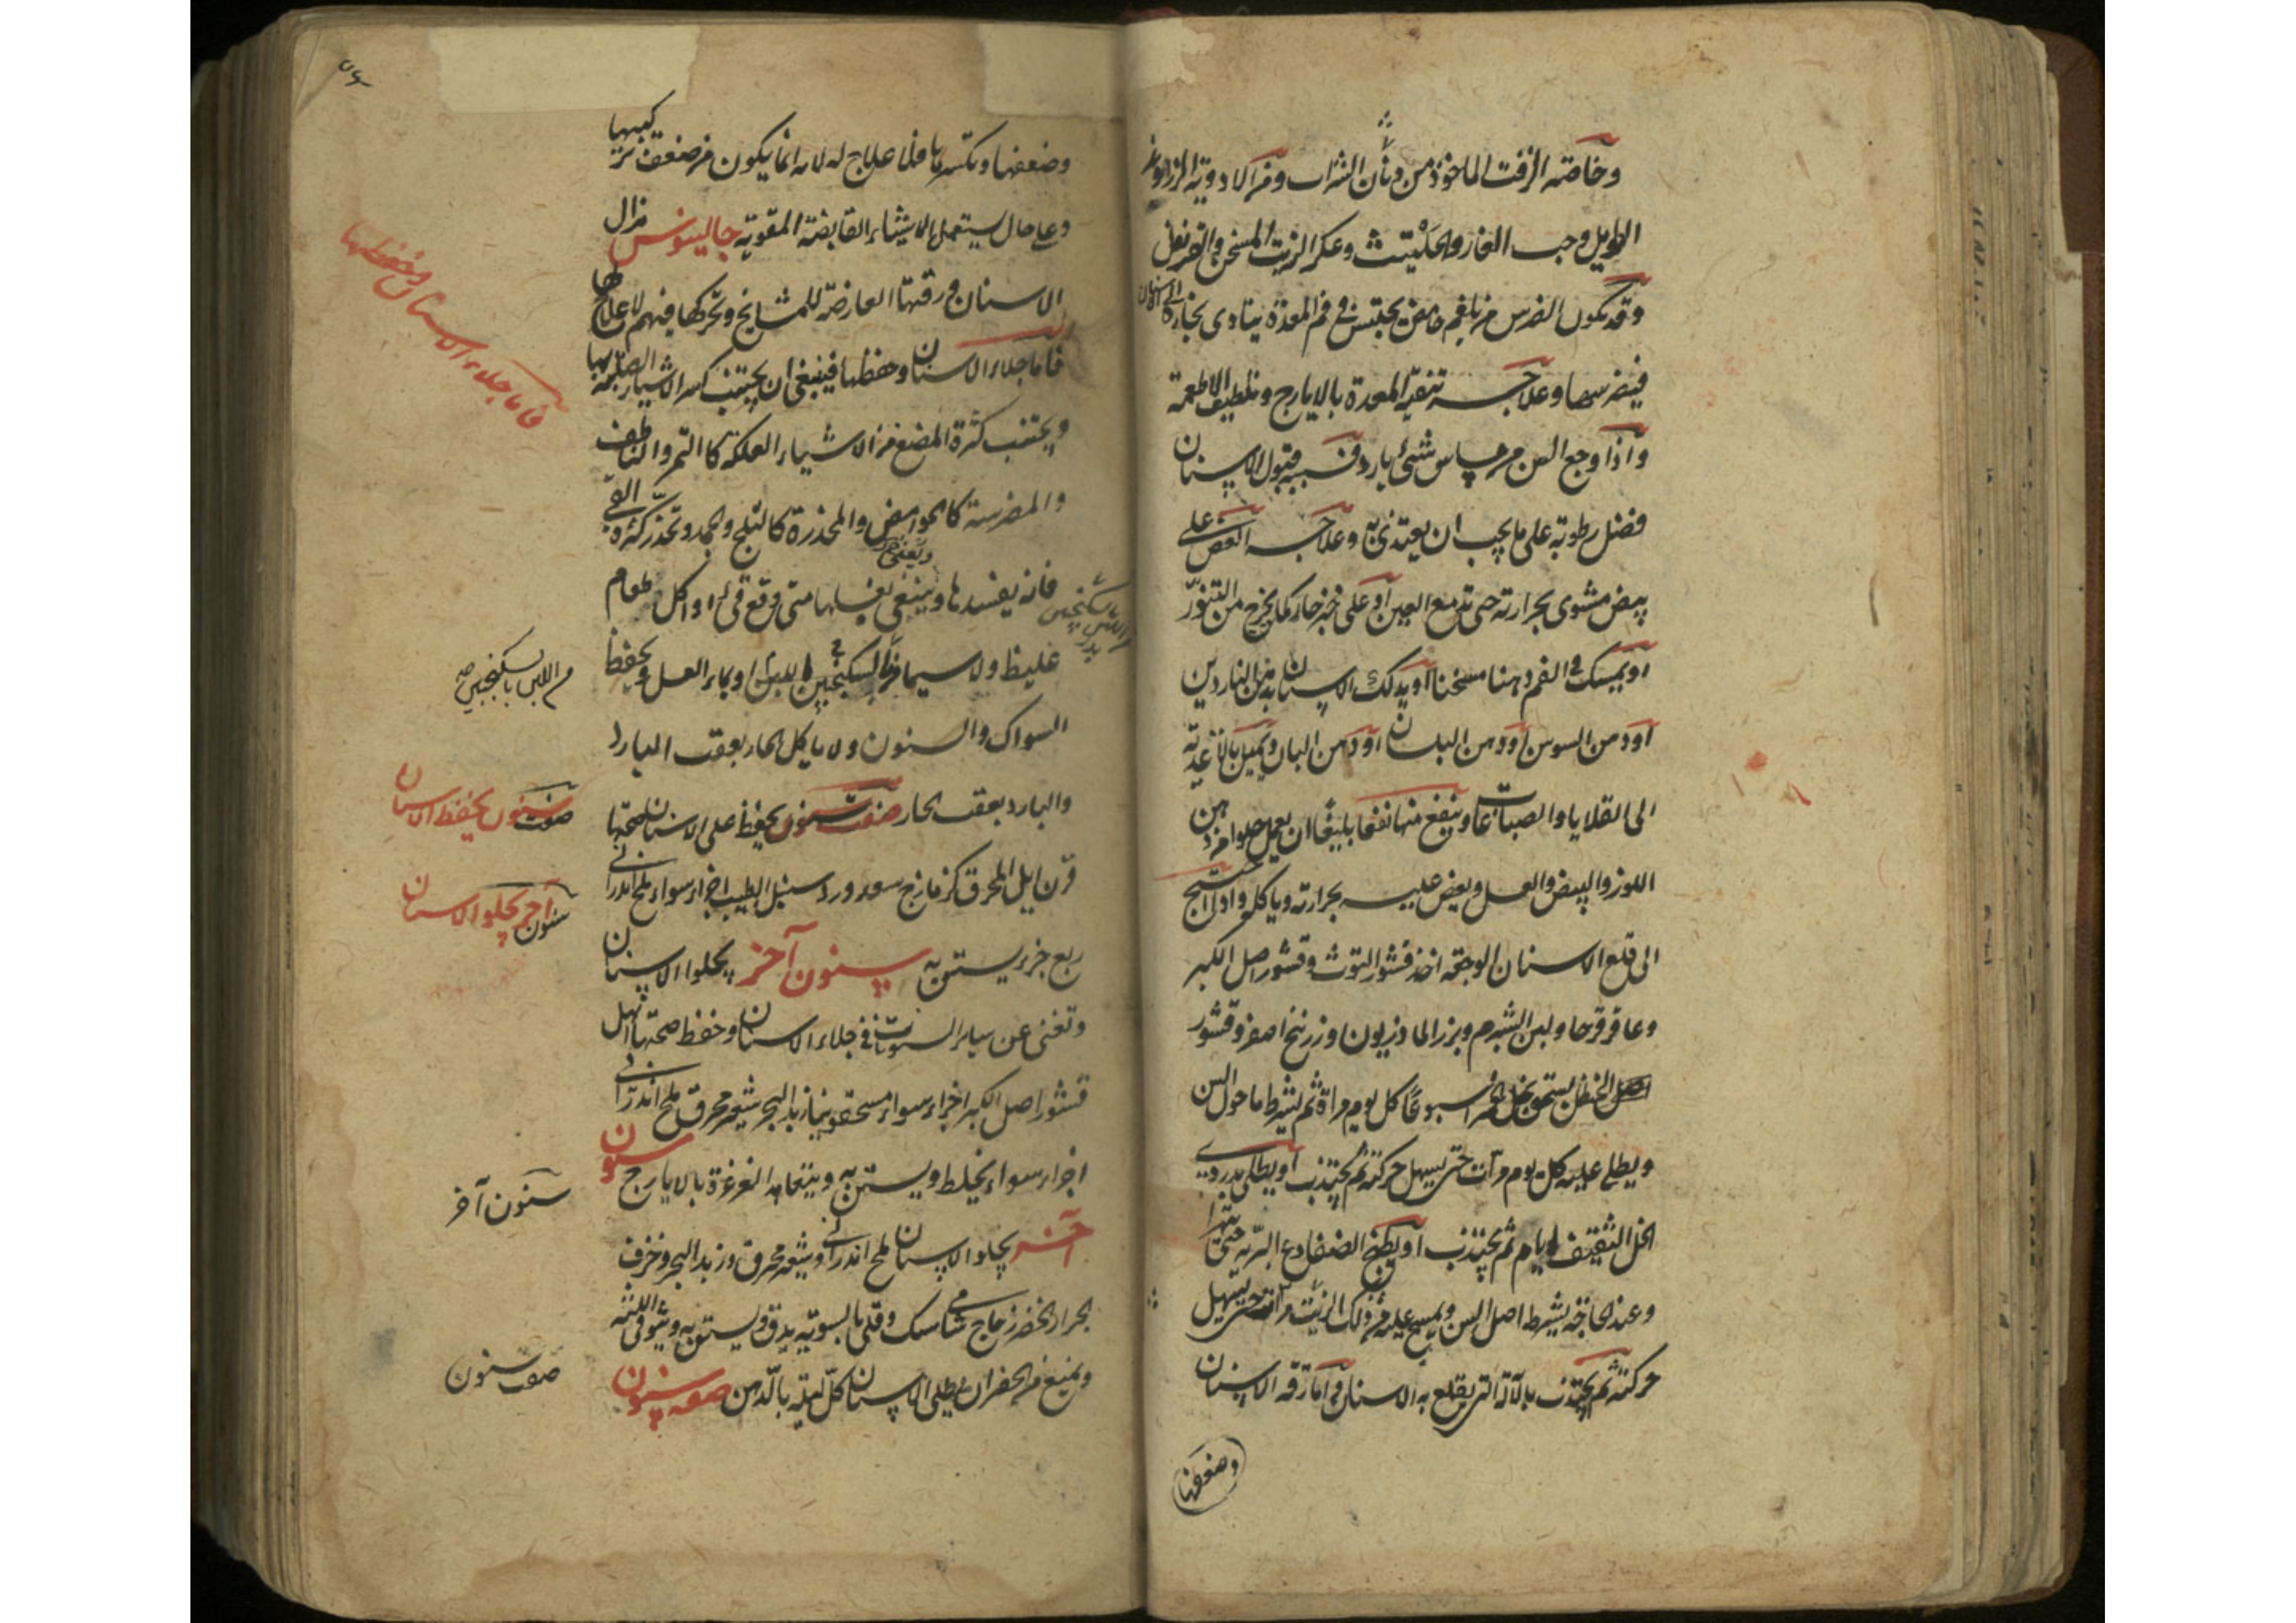 وخاصته الزفت الماخوذ من دنان الشراب ومن الادوية الزراوند
الطويل وحب الغار والحلتيت وعكر الزيت المسخن والقرنفل
وقد يكون الضرس من بلغم حامض يحتبس في فم المعدة يتادى بخاره الى الاسنان
فيضرسها وعلاجه تنقية المعدة بالايارج وتلطيف الاطعمة
واذا وجع السن من مساس شئ بارد فسببه قبول الاسنان
فضل رطوبة على ما يجب ان يغتذى به وعلاجه العض على
بيض مشوى بحرارته حتى تدمع العين او على خبز حار كما يخرج من التنور
او يمسك في الفم دهنا مسخنا او يدلك الاسنان بدهن الناردين
او دهن السوسن او دهن البلسان او دهن البان ويميل بالاغذية
الى القلايا والصباغات وينفع منها نفعا بليغا ان يعمل حلوا من دهن
اللوز والبيض والعسل ويعض عليه بحرارته وياكله واذا احتيج
الى قلع الاسنان الوجعة اخذ قشور التوث وقشور اصل الكبر
وعاقرقرحا ولبن الشبرم وبزر الماذريون وزرنيخ اصفر وقشور
اصل الحنظل يسحق بخل خمر اسبوعا كل يوم مراة ثم يشرط ما حول السن
ويطلى عليه كل يوم مرات حتى يسهل حركته ثم يجتذب او يطلى بدردى
الخل الثقيف ايام ثم يجتذب او يطبخ الضفادع البرية حتى يتهرا
وعند الحاجة يشرط اصل السن ويمسح عليه من ذلك الزيت مرات حتى يسهل
حركته ثم يجتذب بالآلة التى يقلع به الاسنان فاما رقة الاسنان
وضعفها
وضعفها وتكسرها فلا علاج له لانه انما يكون من ضعف تركيبها
وعلى حال يستعمل الاشياء القابضة المقوية جالينوس هزال
الاسنان ورقتها العارضة للمشايخ وتحركها فيهم لا علاج لها
فاما جلاء الاسنان وحفظها فينبغى ان يجتنب كسر الاشياء الصلبة بها
ويجتنب كثرة المضغ من الاشياء العلكة كالتمر والناطف
والمضرسة كالحوامض والمخدرة كالثلج والجمد وتحذر كثرة القئ
فانه يفسدها وينبغى غسلها متى وقع قئ او اكل طعام
غليظ ولا سيما من اللبن بالسكنجبين او بماء العسل ويحفظ
السواك والسنون ولا ياكل الحار بعقب البارد
والبارد بعقب الحار صفت سنون يحفظ على الاسنان صحتها
قرن ايل المحرق كزمازج سعد ورد سنبل الطيب اجزاء سواء ملح اندرانى
ربع جزء يستن به سنون آخر يجلوا الاسنان
وتغنى عن ساير السنونات في جلاء الاسنان وحفظ صحتها
قشور اصل الكبر اجزاء سواء زبد البحر شعير محرق ملح اندرانى
اجزاء سواء يخلط ويستن به ويتعاهد الغرغرة بالايارج سنون
آخر يجلو الاسنان ملح اندرانى وشعير محرق وزبد البحر وخزف
الجرار الخضر زجاج شامى وقلى بالسوية يدق ويستن به
ويمنع من الحفر ان يطلى الاسنان كل ليلة بالدهن صفه سنون
فاما جلاء الاسنان وحفظها
من اللبن بالسكنجبين
صفت سنون يحفظ الاسنان
سنون آخر يجلو الاسنان
سنون آخر
صفت سنون